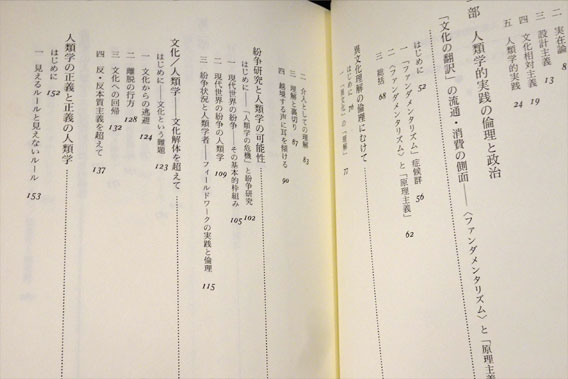 二 実在論 8
三 設計主義 13
四 文化相対主義 19
五 人類学的実践 24
部 人類学的実践の倫理と政治
「文化の翻訳」の流通・消費の側面──〈ファンダメンタリズム〉と「原理主義
はじめに 52
一 「〈ファンダメンタリズム〉」症候群 56
二 〈ファンダメンタリズム〉と「原理主義」 62
三 総括 68
異文化理解の倫理にむけて
はじめに 76
一 「異文化」の「理解」 77
二 介入としての理解
三 理解と裏切り
四 越境する声に耳を傾ける 90
紛争研究と人類学の可能性
はじめに──「人類学の危機」と紛争研究 102
一 現代世界の紛争──その基本的枠組み 105
二 現代世界の紛争の人類学 109
三 紛争状況と人類学者──フィールドワークの実践と倫理 115
文化/人類学──文化解体を超えて
はじめに──文化という難題 123
一 文化からの逃避 124
二 離脱の行方 128
三 文化への回帰 132
四 反・反本質主義を超えて 137
人類学の正義と正義の人類学
はじめに 152
一 見えるルールと見えないルール 153